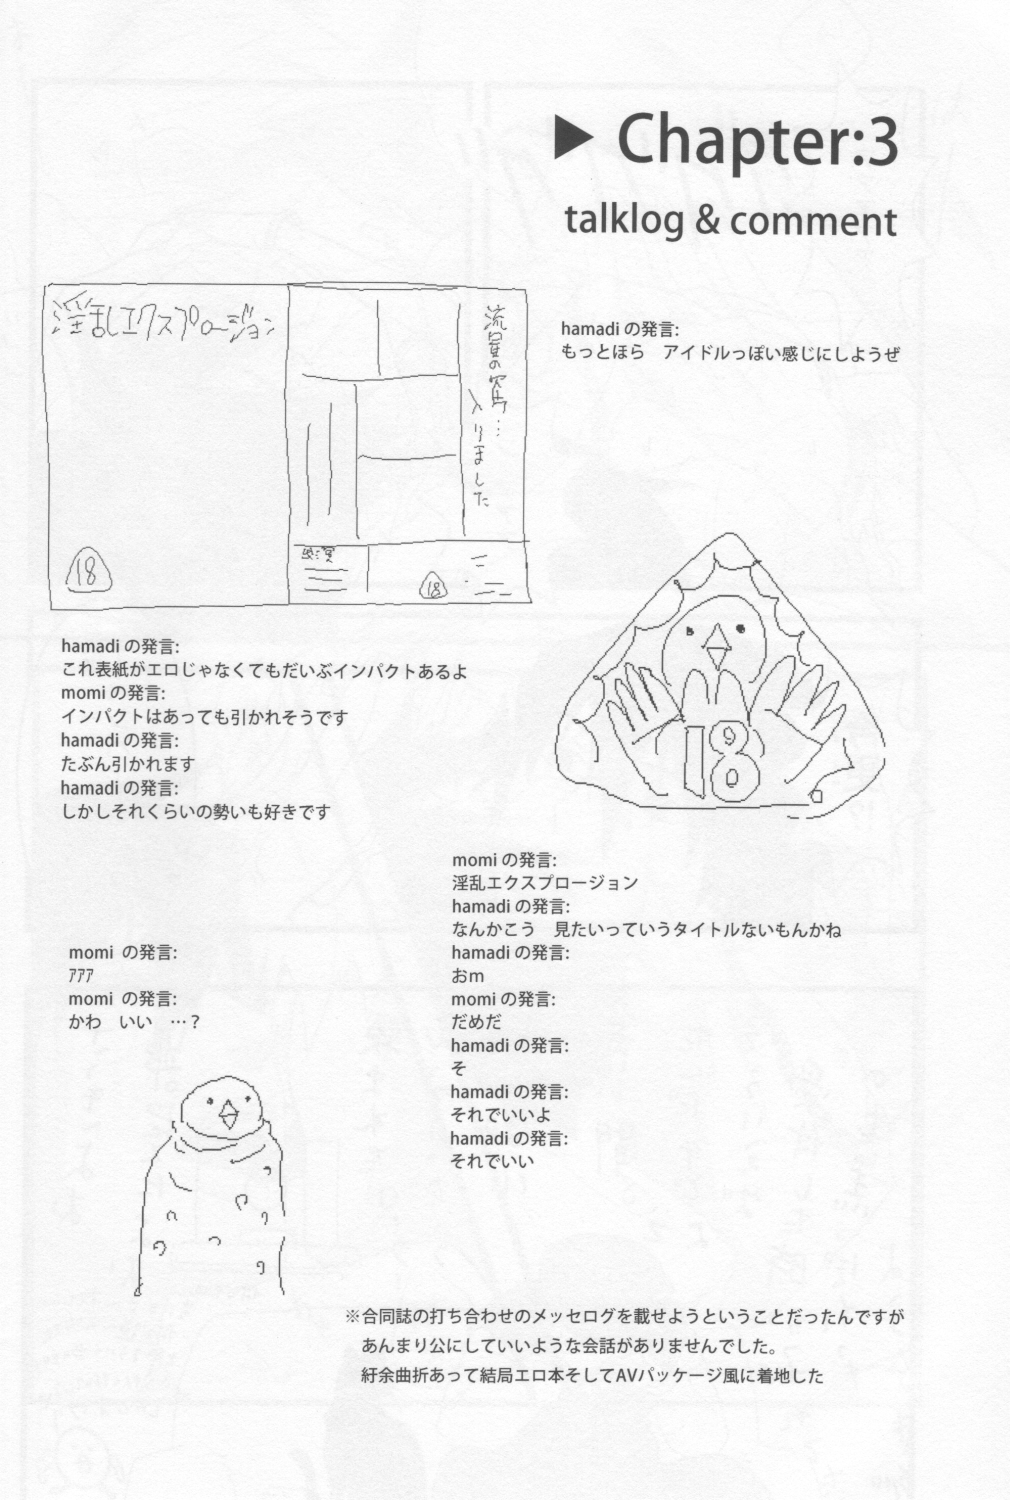 ▶ Chapter:3
talklog & comment
淫乱エクスプロージョン
流星の穴…
入りました
出演
18
18
hamadi の発言:
もっとほら　アイドルっぽい感じにしようぜ
hamadi の発言:
これ表紙がエロじゃなくてもだいぶインパクトあるよ
momi の発言:
インパクトはあっても引かれそうです
hamadi の発言:
たぶん引かれます
hamadi の発言:
しかしそれくらいの勢いも好きです
18
momi の発言:
淫乱エクスプロージョン
hamadi の発言:
なんかこう　見たいっていうタイトルないもんかね
hamadi の発言:
おm
momi の発言:
だめだ
hamadi の発言:
そ
hamadi の発言:
それでいいよ
hamadi の発言:
それでいい
momi の発言:
ｱｱｱ
momi の発言:
かわ　いい　…？
※合同誌の打ち合わせのメッセログを載せようということだったんですが
あんまり公にしていいような会話がありませんでした。
紆余曲折あって結局エロ本そしてAVパッケージ風に着地した